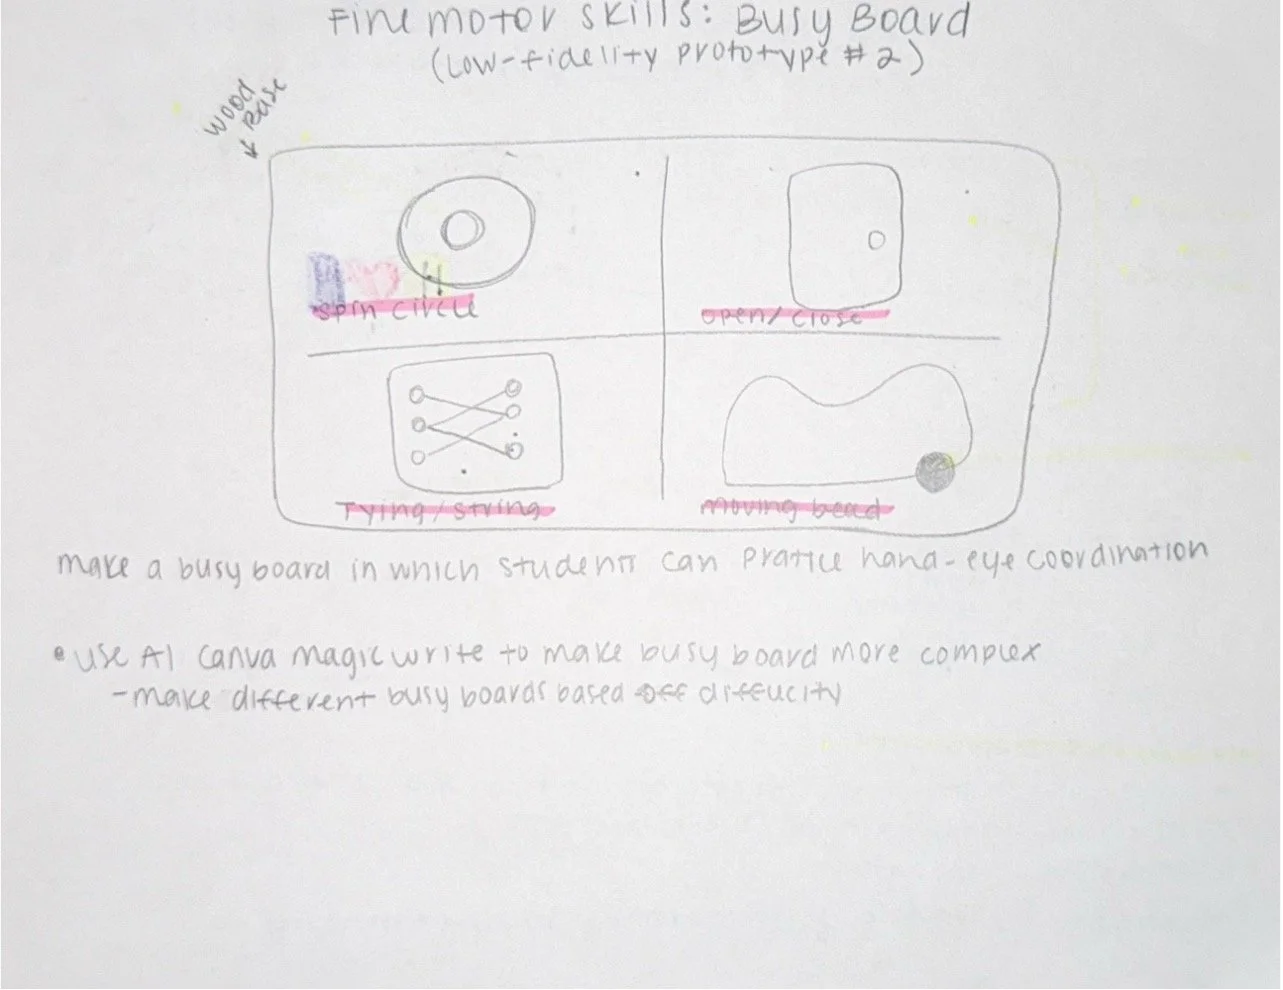 Fine motor skills: Busy Board
(Low-fidelity prototype #2)
wood
Base
spin circle
open/close
Tying/string
moving bead
make a busy board in which students can pratice hand-eye coordination
• use AI canva magic write to make busy board more complex
- make different busy boards based off diffucity